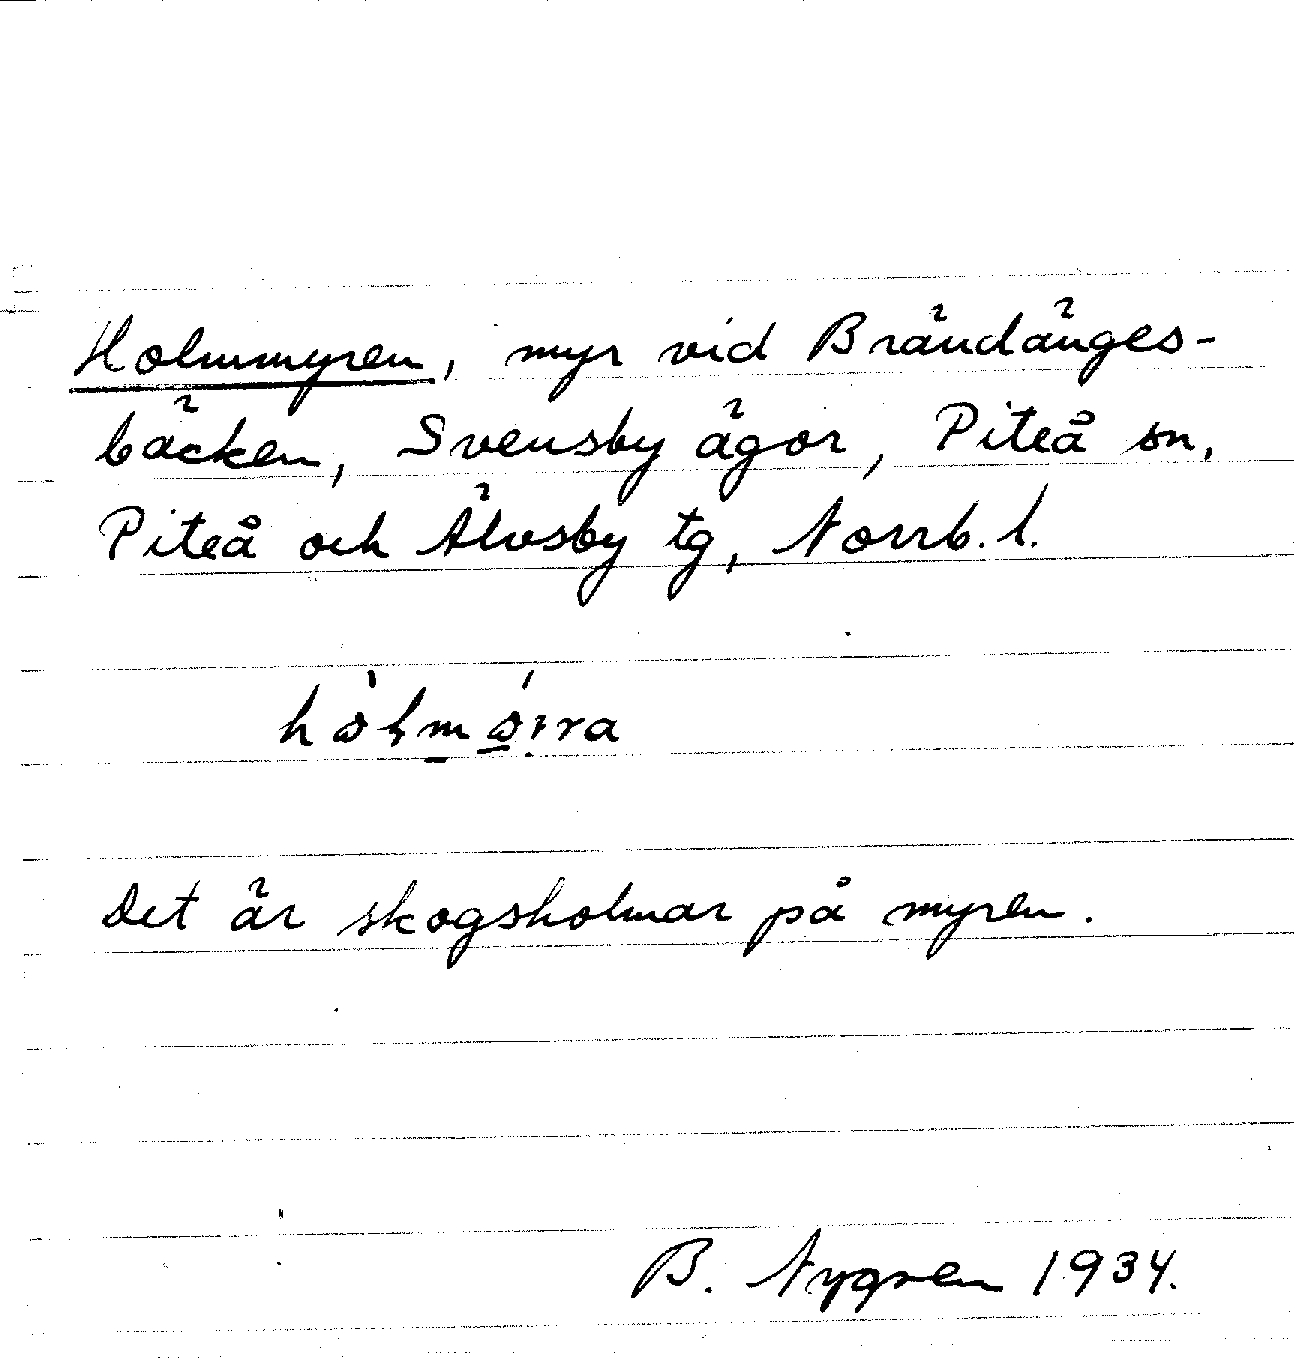 Holmmyren, myr vid Brändänges-
bäcken, Svensby ägor, Piteå sn,
Piteå och Älvsby tg, Norrb. l.
Det är skogsholmar på myren.
B. Nygren 1934.